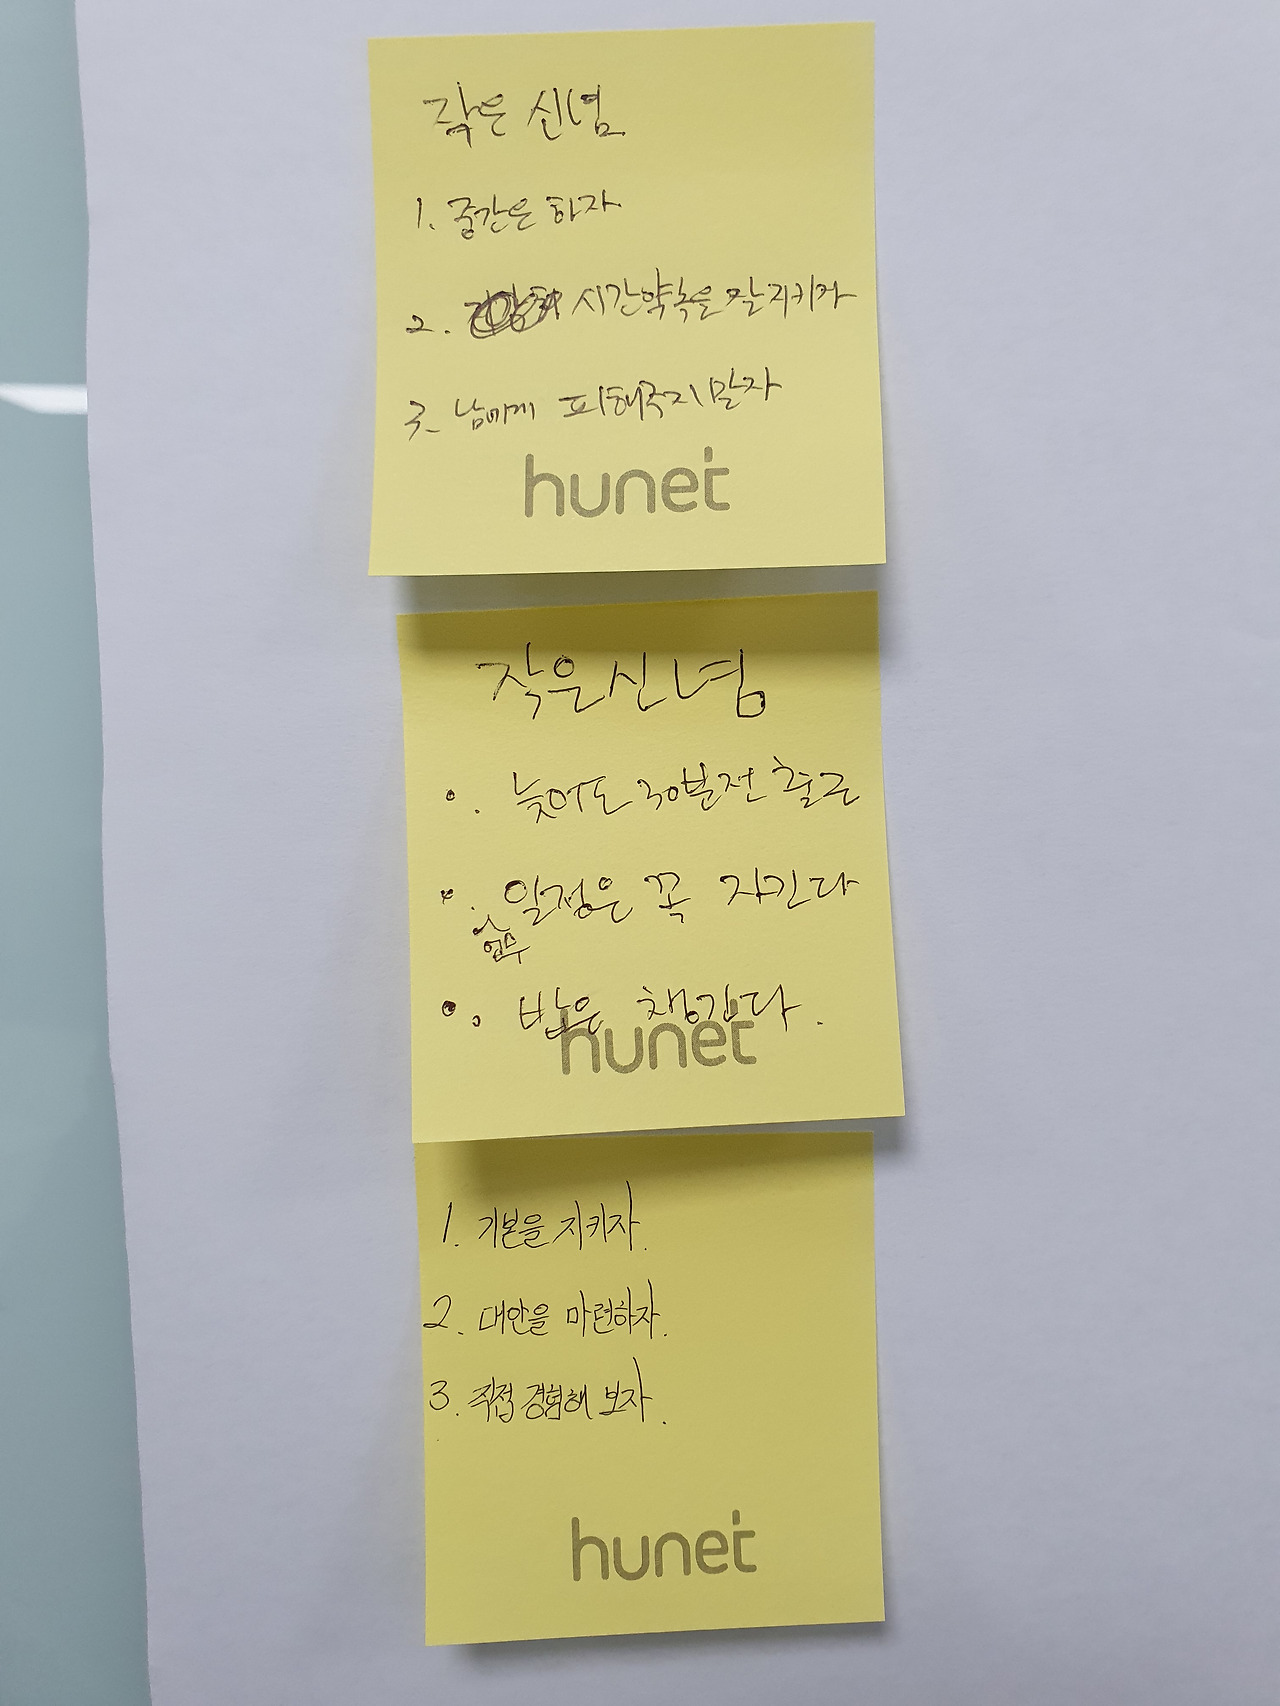 작은 신념
1. 중간은 하자
2. 시간약속을 잘 지키자
3. 남에게 피해주지말자
hunet
작은신념
늦어도 30분전 출근
일정은 꼭 지킨다
업무
밥은 챙긴다.
hunet
1. 기본을 지키자.
2. 대안을 마련하자.
3. 직접 경험해 보자.
hunet